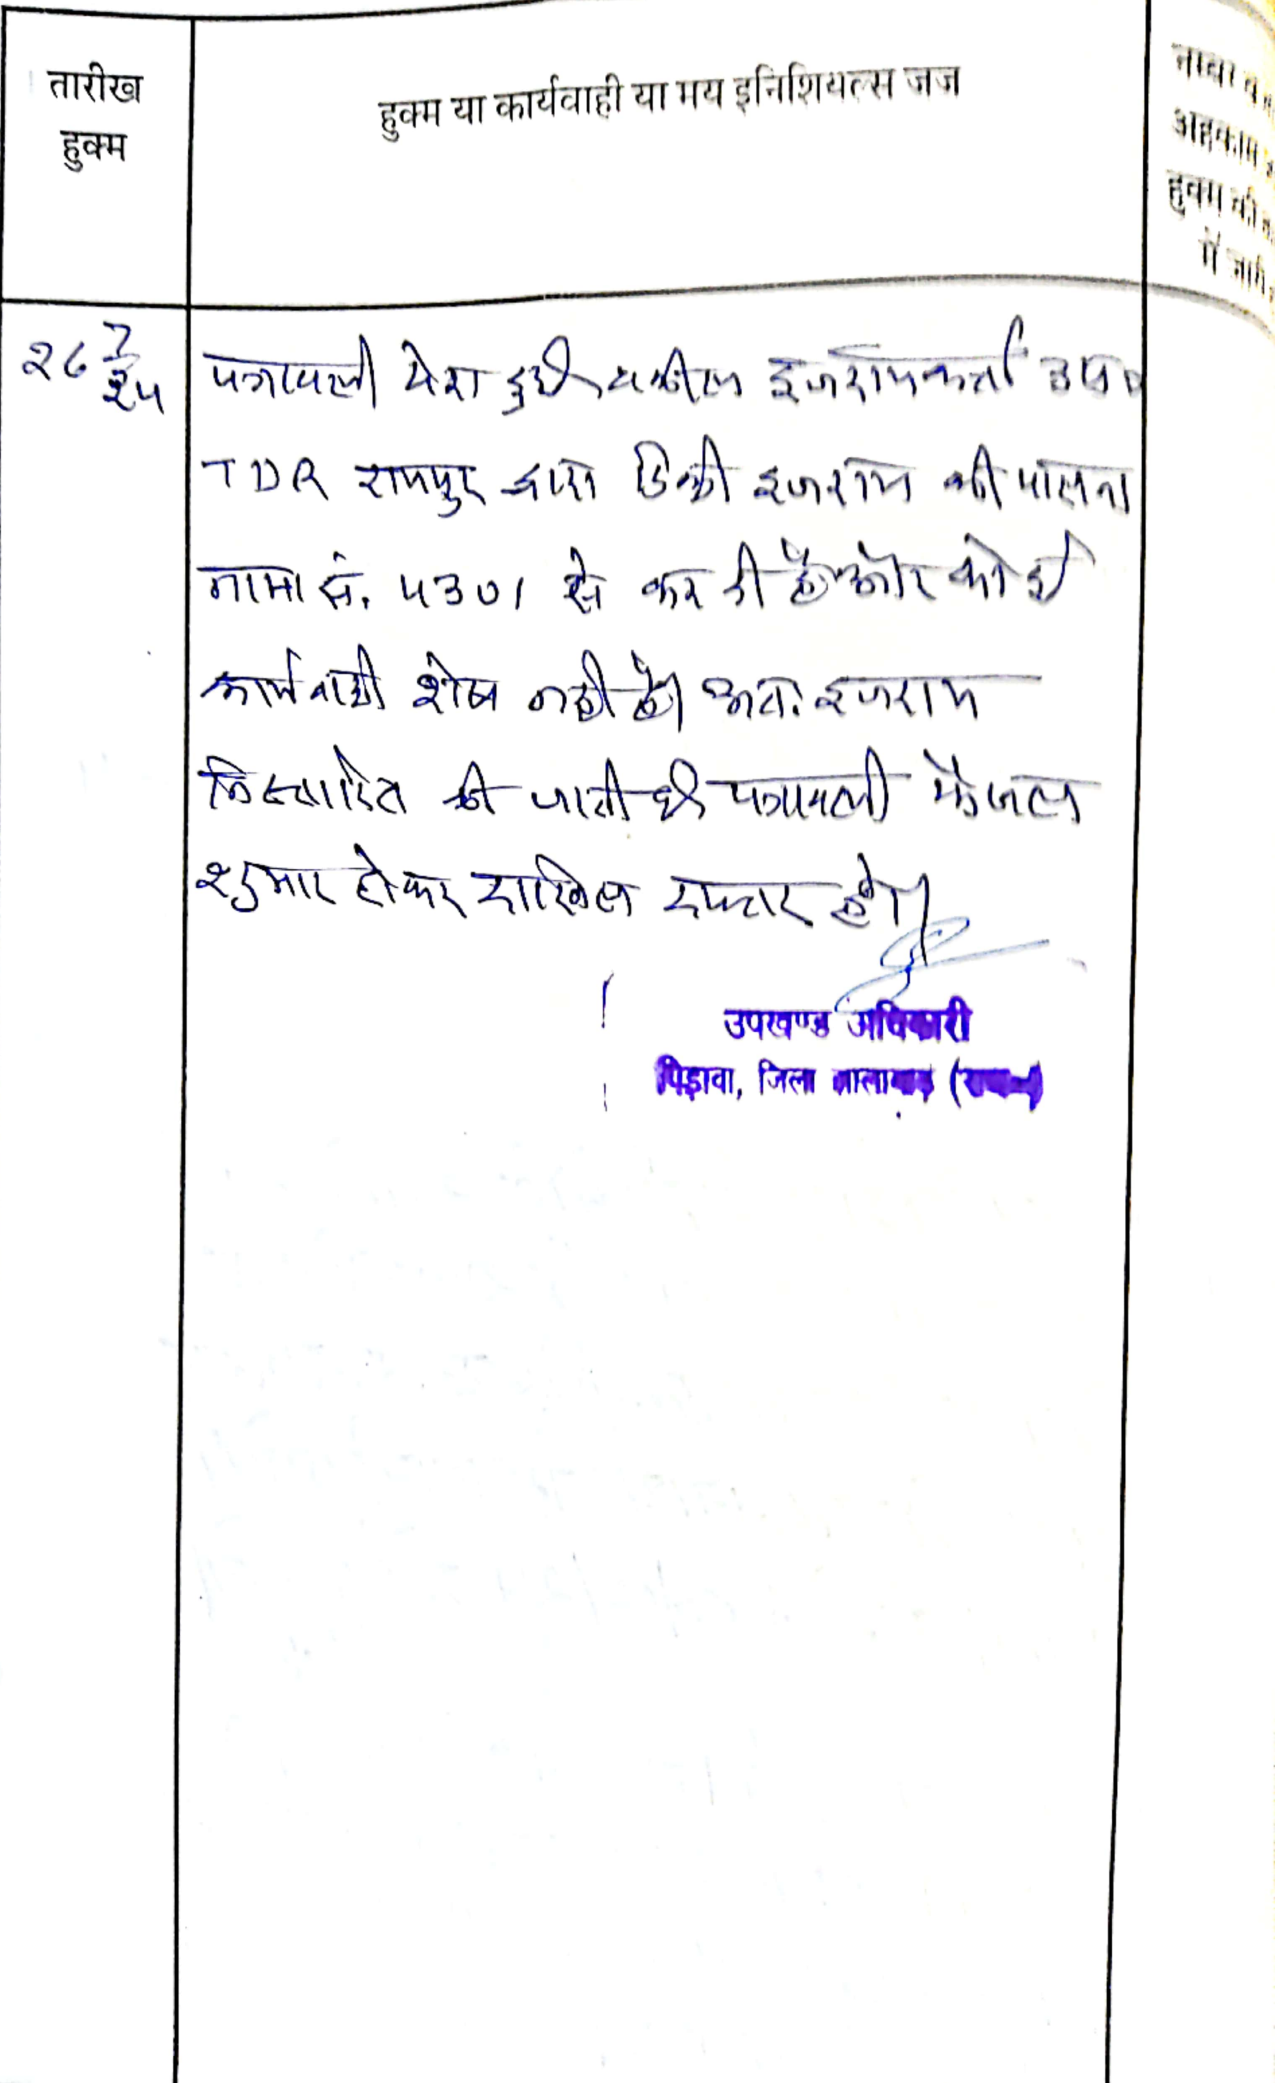 तारीख
हुक्म
हुक्म या कार्यवाही या मय इनिशियल्स जज
अहकाम
हुक्म की
में जारी
२८ 7/२५
पत्रावली पेश हुई। वकील इजरायकर्ता उप०
TDR रायपुर द्वारा डिक्री इजराय की पालना
नामा सं. ५३०१ से कर दी है। और कोई
कार्यवाही शेष नहीं है। अतः इजराय
निस्तारित की जाती है। पत्रावली फैजल
शुमार होकर दाखिल दफ्तर हो।
उपखण्ड अधिकारी
पिड़ावा, जिला झालावाड़ (राज०)